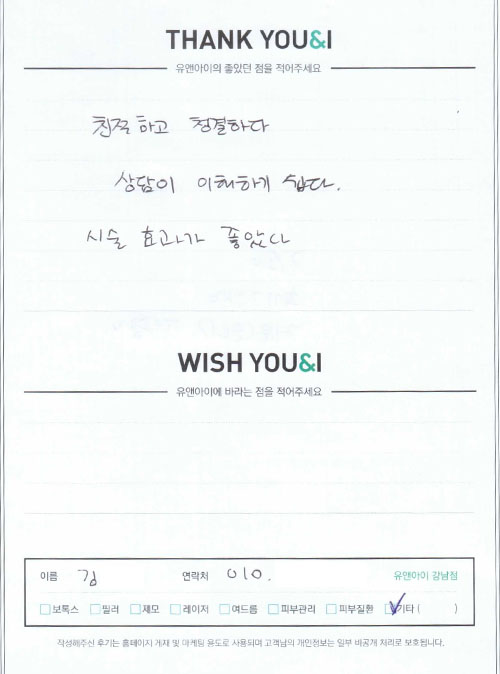 THANK YOU&I
유앤아이의 좋았던 점을 적어주세요
친절하고 청결하다
상담이 이해하기 쉽다.
시술 효과가 좋았다
WISH YOU&I
유앤아이에 바라는 점을 적어주세요
이름 김 연락처 010. 유앤아이 강남점
보톡스 필러 제모 레이저 여드름 피부관리 피부질환 기타 ( )
작성해주신 후기는 홈페이지 게재 및 마케팅 용도로 사용되며 고객님의 개인정보는 일부 비공개 처리로 보호됩니다.